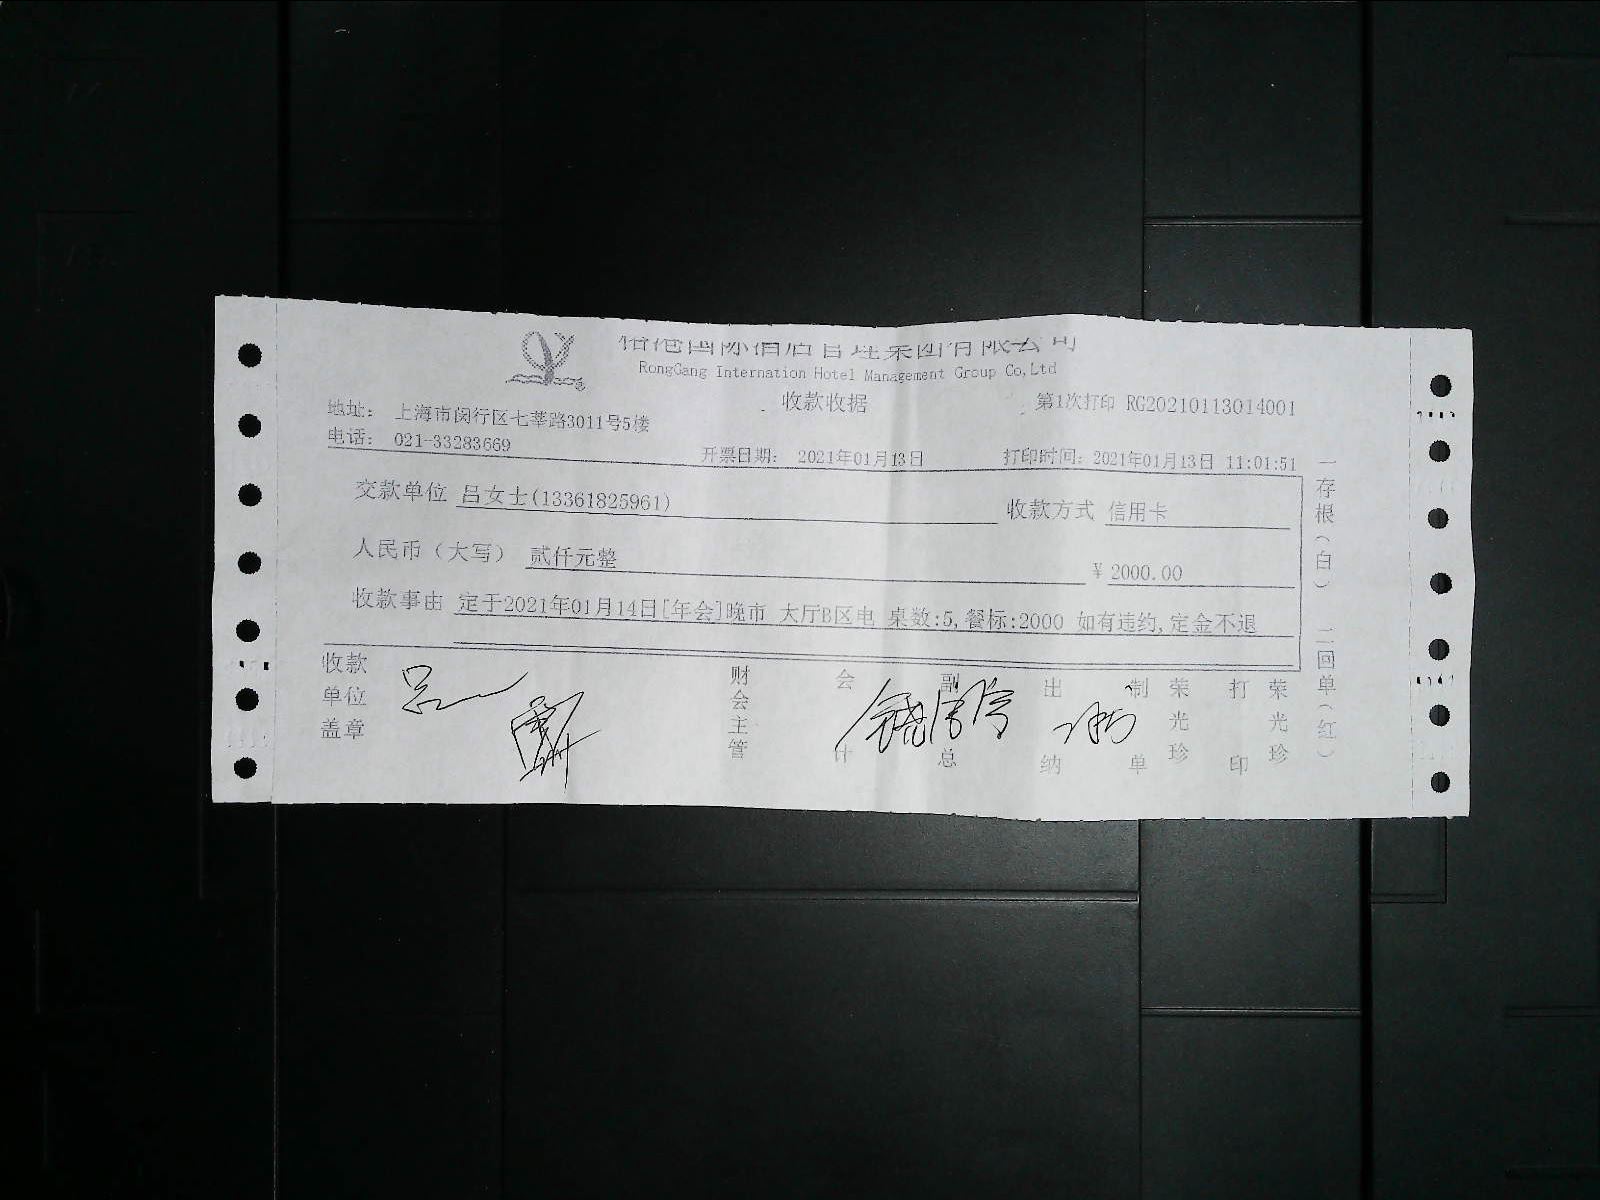 港国际酒店管理集团有限公司
RongGang Internation Hotel Management Group Co,Ltd
收款收据
第1次打印 RG20210113014001
地址： 上海市闵行区七莘路3011号5楼
电话： 021-33283669
开票日期： 2021年01月13日
打印时间：2021年01月13日 11:01:51
交款单位 吕女士(13361825961)
收款方式 信用卡
人民币（大写） 贰仟元整
¥ 2000.00
收款事由 定于2021年01月14日[年会]晚市 大厅B区电 桌数:5,餐标:2000 如有违约,定金不退
收款单位盖章
财会主管
会计
副总
出纳
制单
荣光珍
打印
荣光珍
一存根（白） 二回单（红）